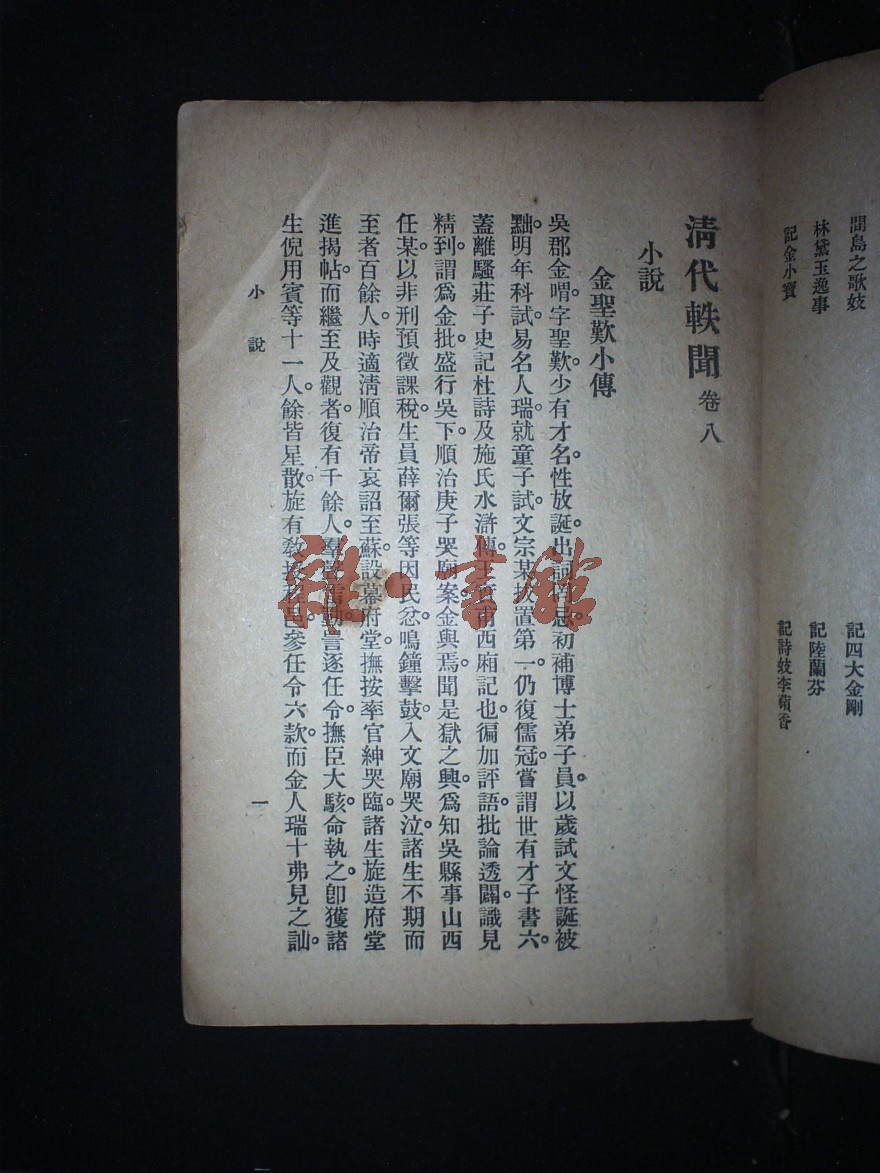 間島之歌妓
記四大金剛
林黛玉逸事
記陸蘭芬
記金小寶
記詩妓李蘋香
清代軼聞 卷八
小說
金聖歎小傳
吳郡金喟。字聖歎。少有才名。性放誕。出詞忌。初補博士弟子員。以歲試文怪誕被
黜。明年科試。易名人瑞。就童子試。文宗某拔置第一。仍復儒冠。嘗謂世有才子書六。
蓋離騷莊子史記杜詩及施氏水滸傳王甫西廂記也。徧加評語。批論透闢。識見
精到。謂爲金批。盛行吳下。順治庚子哭廟案。金與焉。聞是獄之興。爲知吳縣事山西
任某。以非刑預徵課稅。生員薛爾張等因民忿。鳴鐘擊鼓。入文廟哭泣。諸生不期而
至者百餘人。時適淸順治帝哀詔至蘇。設幕府堂。撫按率官紳哭臨。諸生旋造府堂
進揭帖。而繼至及觀者。復有千餘人。羣動。言逐任令。撫臣大駭。命執之。卽獲諸
生倪用賓等十一人。餘皆星散。旋有敎授程邑。參任令六款。而金人瑞十弗見之訕。
小說
一
雜·書館